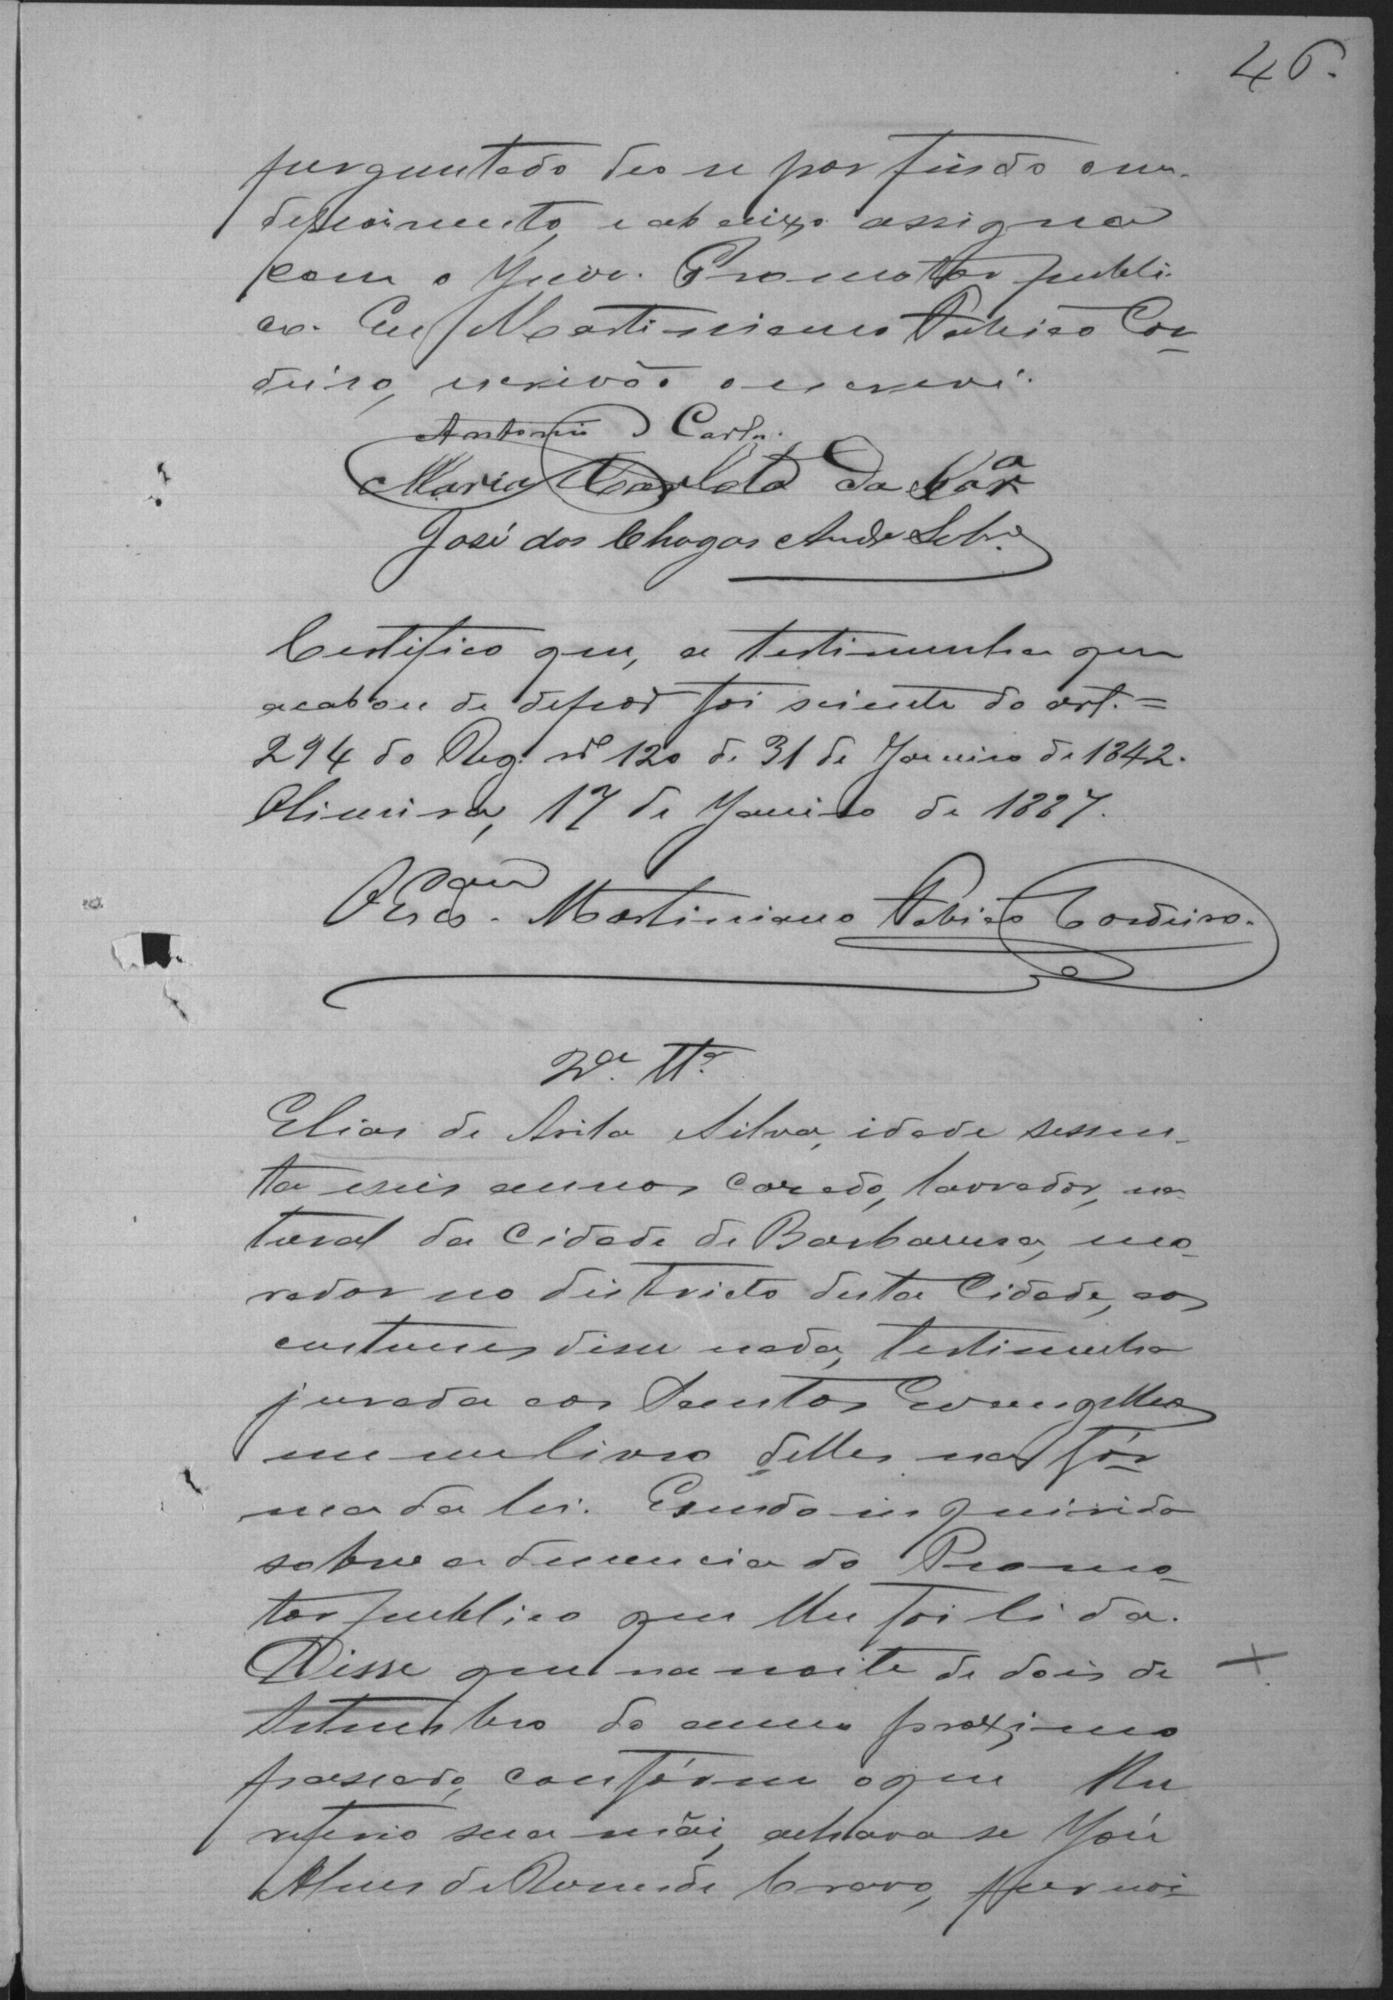 46.
perguntado deo se por findo o seu
depoimento, e abaixo assigna
com o Juiz. Promotor publi-
co. Eu, Martiniano Fabião Cor-
deiro, escrivão o escrevi.
Antonio Carlos
Maria Carlota da
José das Chagas Andr.e Sobr.o
Certifico que, a testimunha que
acabou de depor foi sciente do art. =
294 do Reg. nº 120 de 31 de Janeiro de 1842.
Oliveira, 17 de Janeiro de 1887.
O Escam. Martiniano Fabião Cordeiro.
2ª Ttª
Elias de Avila e Silva, idade sessen-
ta e seis annos casado, lavrador, na-
tural da Cidade de Barbacena, mo-
rador no districto desta Cidade, aos
costumes disse nada, testimunha
jurada aos Santos Evangelhos
em um livro delles na fór-
ma da lei. E sendo inquirido
sobre a denuncia do Promo-
tor publico que lhe foi lida.
Disse que na noite de dois de
Setembro do anno proximo
passado, confórme o que lhe
referio sua mãi, achava se José
Alves de Resende Cravo, pernoi-